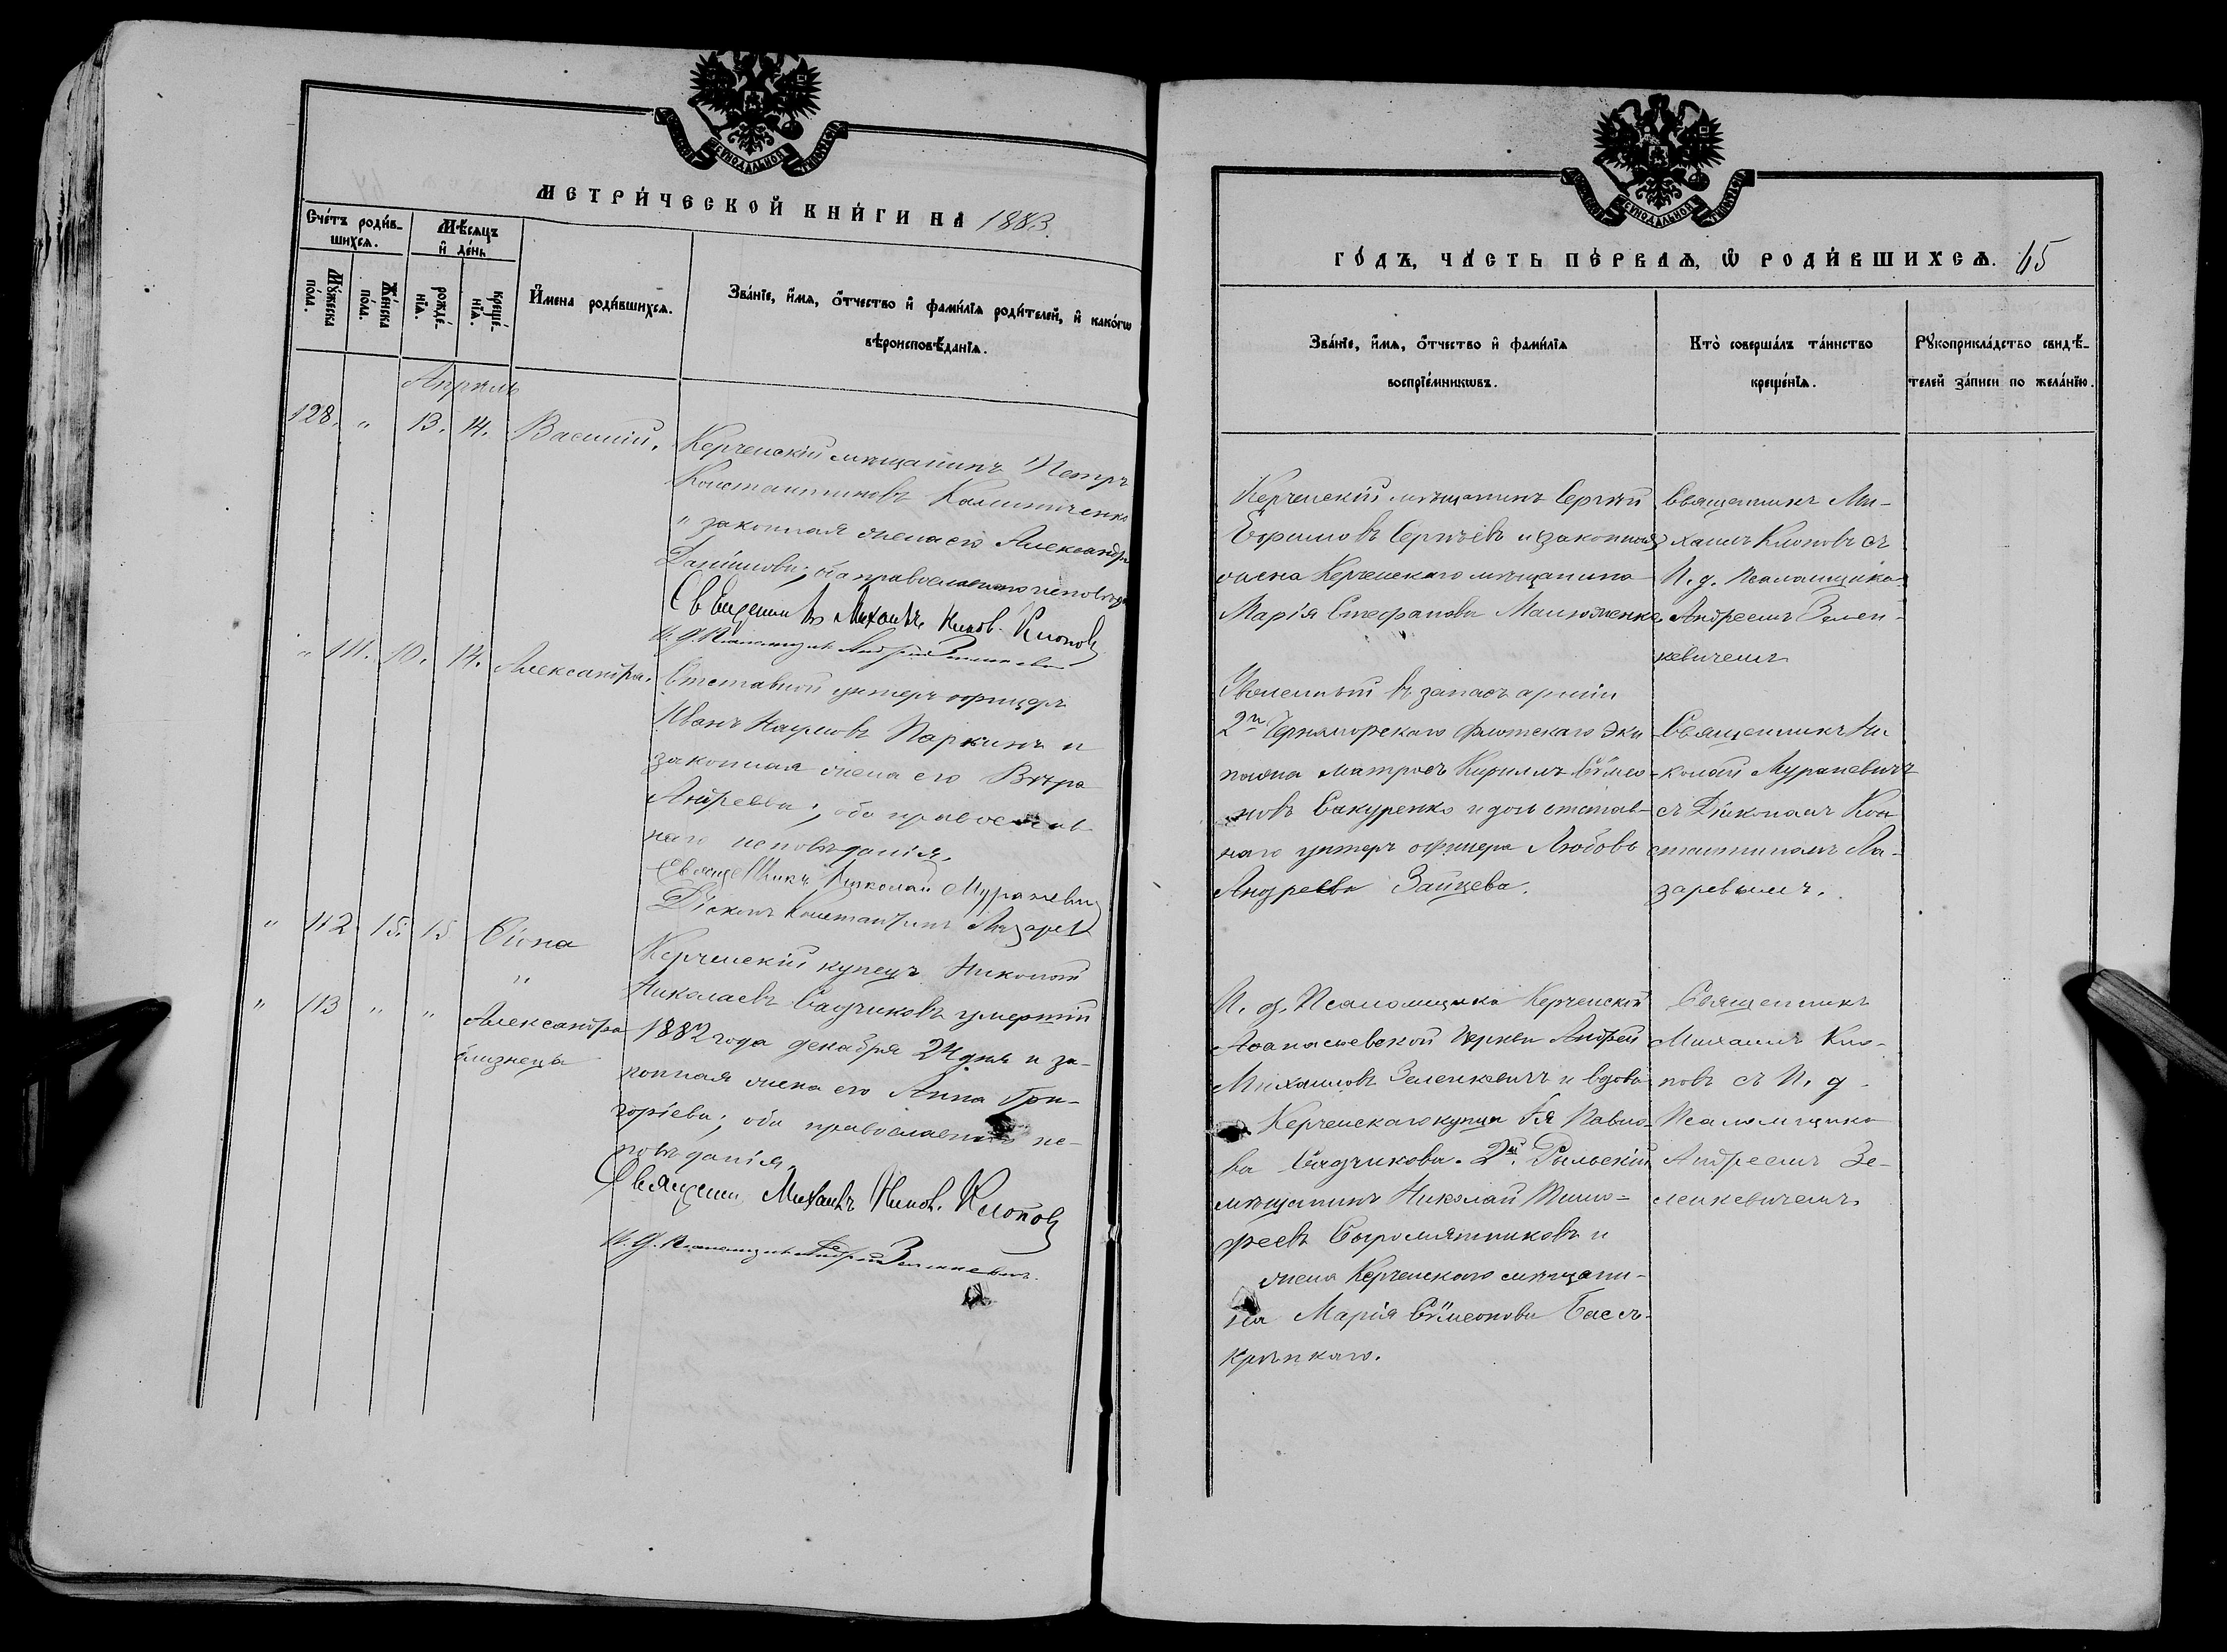 МЕТРИ́ЧЕСКОЙ КНИ́ГИ НА 1883.
Сче́тъ роди́в-
шихсѧ.
Мѣсѧцъ
и де́нь
Мꙋ́жеска
по́ла.
Же́нска
по́ла.
рожде́-
нїѧ.
креще́-
нїѧ.
И҆мена роди́вшихсѧ.
Зва́нїе, и҆мѧ, ѻ҆тчество и҆ фами́лїѧ роди́телей, и҆ како́гѡ
вѣроисповѣ́данїѧ.
Апрель
128. " 13. 14. Василій.
Керченскій мѣщанинъ Петръ
Константиновъ Калиниченко
и законная жена его Александра
Даніилова; оба православнаго исповѣда
Священникъ Михаилъ Клоповъ
И. д. Псаломщика Андрей Зеленкевичъ
" 111. 10. 14. Александра.
Отставной унтеръ офицеръ
Иванъ Наумовъ Паркинъ и
законная жена его Вѣра
Андреева; оба православ
наго исповѣданія.
Священникъ Николай Мураневич
Діаконъ Константинъ Лазарев
" 112 15. 15 Ѳіона
"
" 113 " " Александра
близнецы
Керченскій купецъ Николай
Николаевъ Садчиковъ умершій
1882 года декабря 24 дня и за-
конная жена его Анна Гри-
горіева; оба православнаго ис-
повѣданія.
Священник Михаилъ Клоповъ
И. д. Псаломщика Андрей Зеленкевичъ.
ГО́ДЪ, ЧА́СТЬ ПЕ́РВАѦ, Ѡ҆ РОДИ́ВШИХСѦ. 65
Зва́нїе, и҆мѧ, ѻ҆тчество и҆ фами́лїѧ
воспрїе́мникѡвъ.
Кто̀ соверша́лъ та́инство
креще́нїѧ.
Рꙋкоприкла́дство свидѣ́-
телей за́писи по жела́нїю.
Керченскій мѣщанинъ Сергѣй
Ефимовъ Сергѣевъ и законная
жена Керченскаго мѣщанина
Марія Стефанова Малюженко
Священникъ Ми-
хаилъ Клоповъ съ
И. д. Псаломщика
Андреемъ Зелен-
кевичемъ
Уволенный въ запасъ арміи
2го Черноморскаго флотскаго эки
пажа матросъ Кириллъ Сѵмео
новъ Сакуренко и дочь отстав-
наго унтеръ офицера Любовь
Андреева Зайцева.
Священникъ Ни
колай Мураневичъ
съ Діакономъ Кон
стантиномъ Ла-
заревымъ.
И. д. Псаломщика Керченской
Аѳанасьевской церкви Андрей
Михаиловъ Зеленкевичъ и вдова
Керченскаго купца Павло-
ва Садчикова. 2й. Рыльскій
мѣщанинъ Николай Тимо-
феевъ Сыромятниковъ и
жена Керченскаго мѣщани-
на Марія Сѵмеонова Бассъ-
крѣпкаго.
Священникъ
Михаилъ Кло-
повъ съ И. д.
Псаломщика
Андреемъ Зе-
ленкевичемъ.